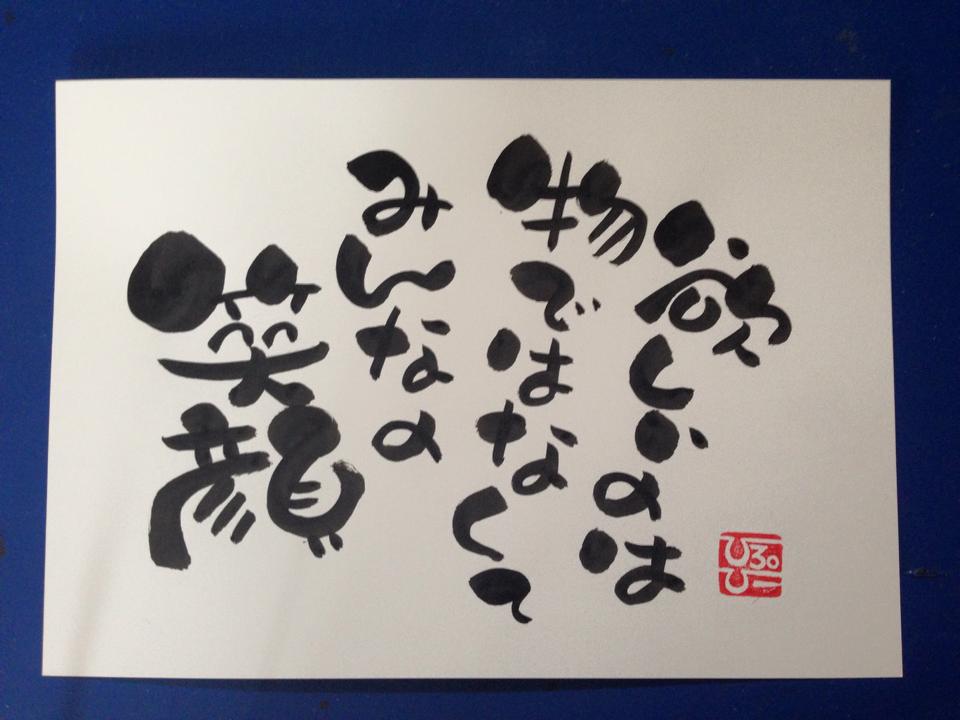 欲しいのは
物ではなくて
みんなの
笑顔